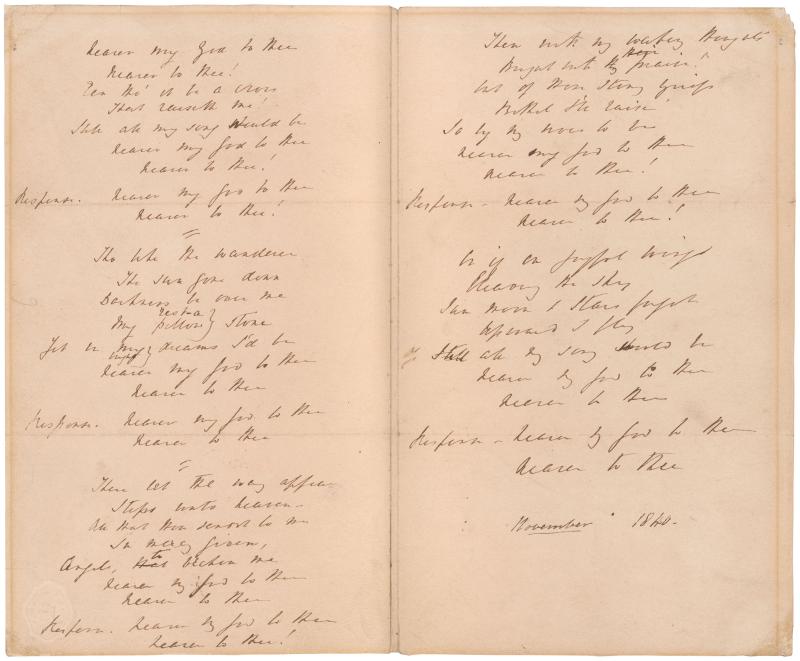 Nearer my God to thee
Nearer to thee!
Een tho' it be a cross
That raiseth me!
Still all my song would be
Nearer my God to thee
Nearer to thee!
Response. Nearer my God to thee
Nearer to thee!
Tho like the wanderer
The sun gone down
Darkness be over me
rest a
My pillow} stone
Yet in my} dreams I'd be
Nearer my God to thee
Nearer to thee
Response. Nearer my God to thee
Nearer to thee
There let the way appear
Steps unto heaven -
All that thou sendst to me
In mercy given,
to
Angels, that beckon me
Nearer my God to thee
Nearer to thee
Response. Nearer my God to thee
Nearer to thee!
Then with my waking thoughts
Bright with thy praise!
Out of thou stony griefs
Bethel I'll raise
So by my woes to be
Nearer my God to thee
Nearer to thee!
Response - Nearer my God to thee
Nearer to thee!
Or if on joyful wing
Cleaving the sky
Sun moon & stars forgot
Upward I fly
Still all my song would be
Nearer my God to thee
Nearer to thee
Response - Nearer my God to thee
Nearer to thee
November 1840.